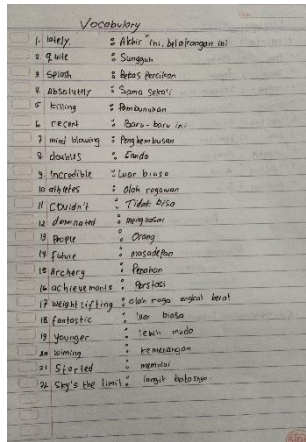 Vocabulary
1. lately. : Akhir" ini, belakangan ini
2. quite : Sungguh
3 Splash : Bebas Percikan
4. Absolutely : Sama Sekali
5 killing : Pembunuhan
6 recent : Baru-baru ini
7 mind blowing : Penghembusan
8 doubles : Ganda
9. Incredible : Luar biasa
10 athletes : Olah ragawan
11 Couldn't : Tidak bisa
12 dominated : menguasai
13 People : Orang
14 future : masadepan
15 Archery : Panahan
16 achievements : Perstasi
17 Weight lifting : olah raga angkat berat
18 fantastic : luar biasa
19 younger : lebih muda
20 wiming : kemenangan
21 Started : memulai
22 Sky's the limit : langit batasnya